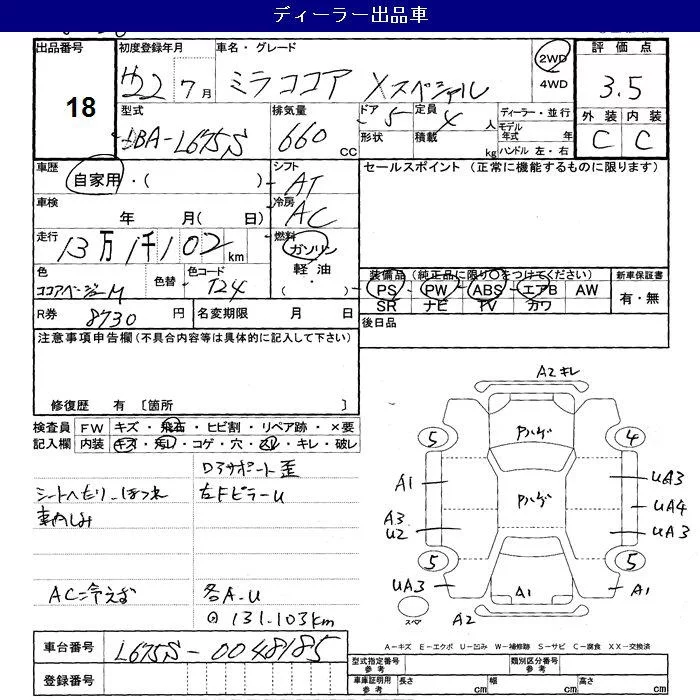 ディーラー出品車
出品番号 初度登録年月 車名・グレード 評価点
18
H22 7月 ミラココア Xスペシャル 2WD 3.5
4WD
型式 排気量 ドア 5 定員 4 人 ディーラー・並行 外装 内装
-L675S 660 CC 形状 積載 kg モデル年式 年 C C
ハンドル 左・右
車歴 自家用・( ) シフト AT セールスポイント (正常に機能するものに限ります)
車検 年 月( 日) 冷房 AC
走行 13万1千102km 燃料 ガソリン
軽油
・( )
色 ココアベージュM 色替 色コード T24
装備品(純正品に限り○をつけてください) 新車保証書
PS PW ABS エアB AW 有・無
SR ナビ TV カワ
R券 8730 円 名変期限 月 日 後日品
注意事項申告欄(不具合内容等は具体的に記入して下さい)
修復歴 有 [箇所 ]
検査員 FW キズ・飛石・ヒビ割・リペア跡・×要
記入欄 内装 キズ・汚レ・コゲ・穴・スレ・キレ・破レ
シートへたり-ほつれ 左Fピラー-U
AC冷えず 各A-U
131-103km
車台番号 L675S-0048185
登録番号
A2キレ
Pハゲ
5 4
A1 Pハゲ UA3
UA4
A3
U2 UA3
5 5
UA3 A1 A1
スペア A2
A-キズ E-エクボ U-凹み W-補修跡 S-サビ C-腐食 XX-交換済
型式指定番号 参考 類別区分番号 参考
車庫証明用 参考 長さ cm 幅 cm 高さ cm